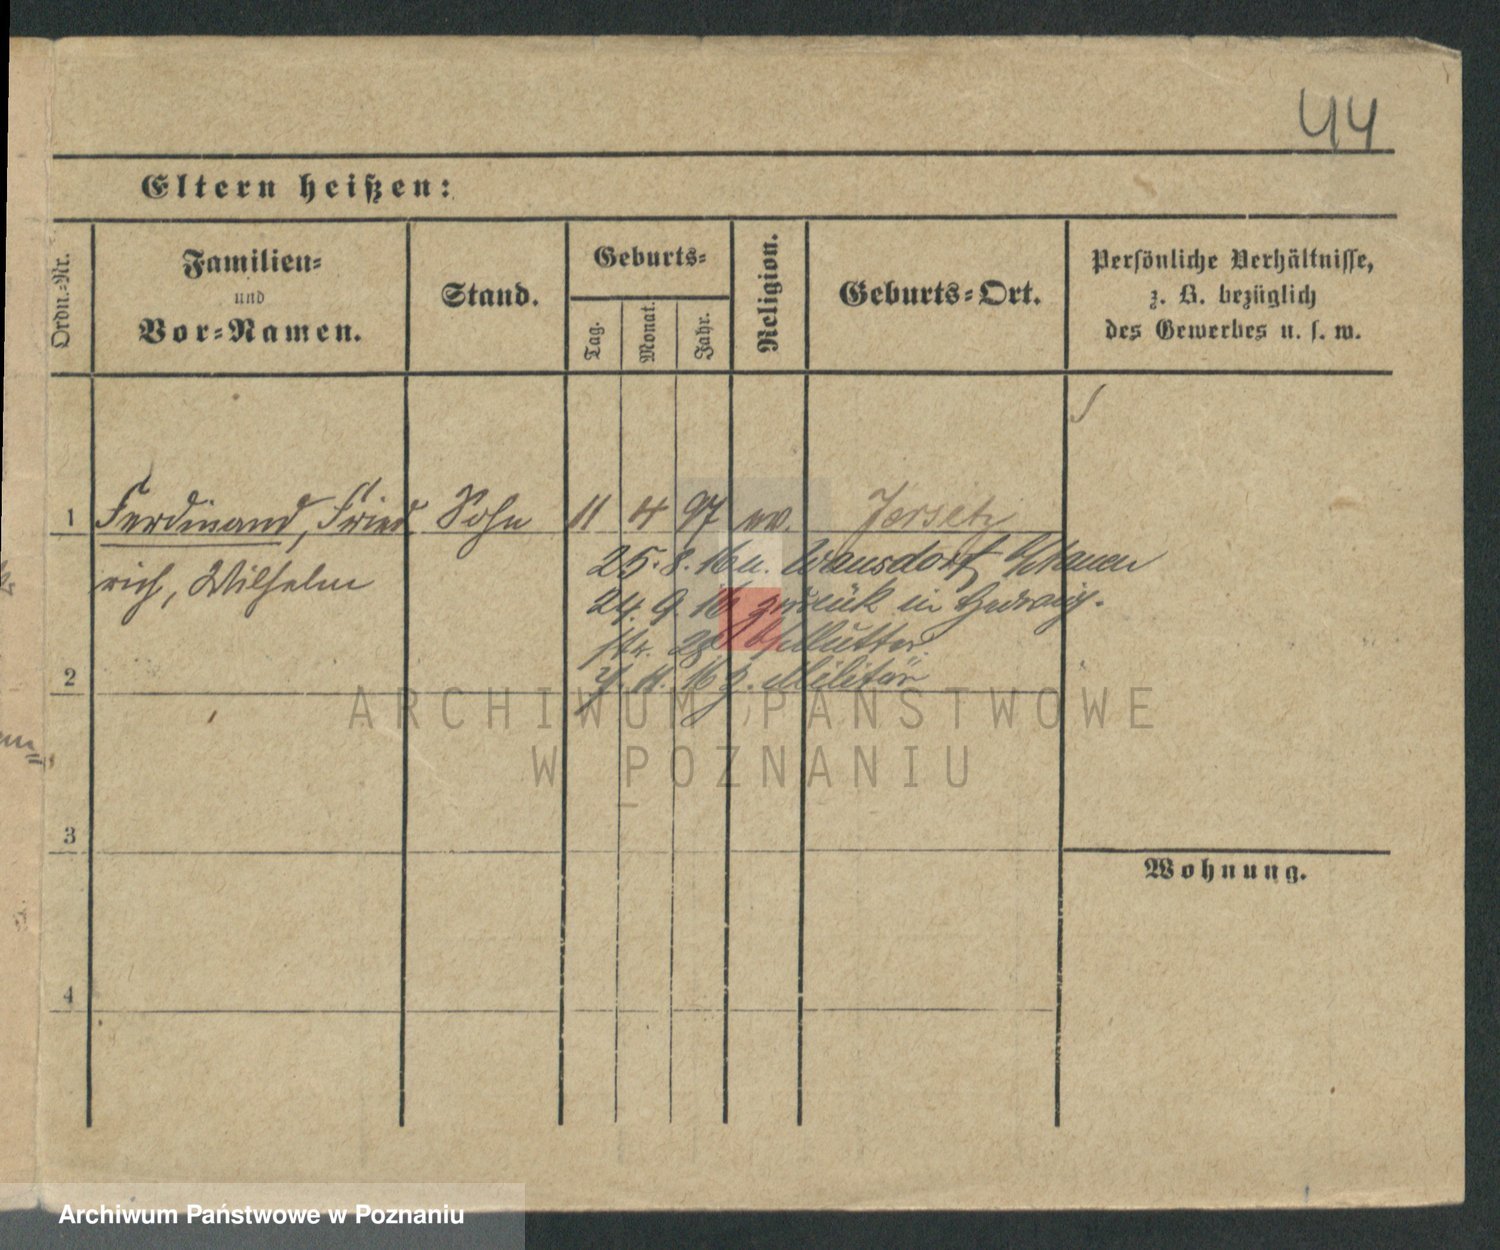 44
Eltern heißen:
Ordn.-Nr.
Familien-
und
Vor-Namen.
Stand.
Geburts-
Tag.
Monat.
Jahr.
Religion.
Geburts-Ort.
Persönliche Verhältnisse,
z. B. bezüglich
des Gewerbes u. s. w.
1 Ferdinand, Fried Sohn 11 4 97 ev. Jersetz
rich, Wilhelm
25. 8. 16 n. Wansdorf b/
24. 9. 16 zurück in Hedwig-
str. 28 b/Mutter.
11. 16 z. Militär
2
3
4
Wohnung.
ARCHIWUM PAŃSTWOWE
W POZNANIU
Archiwum Państwowe w Poznaniu